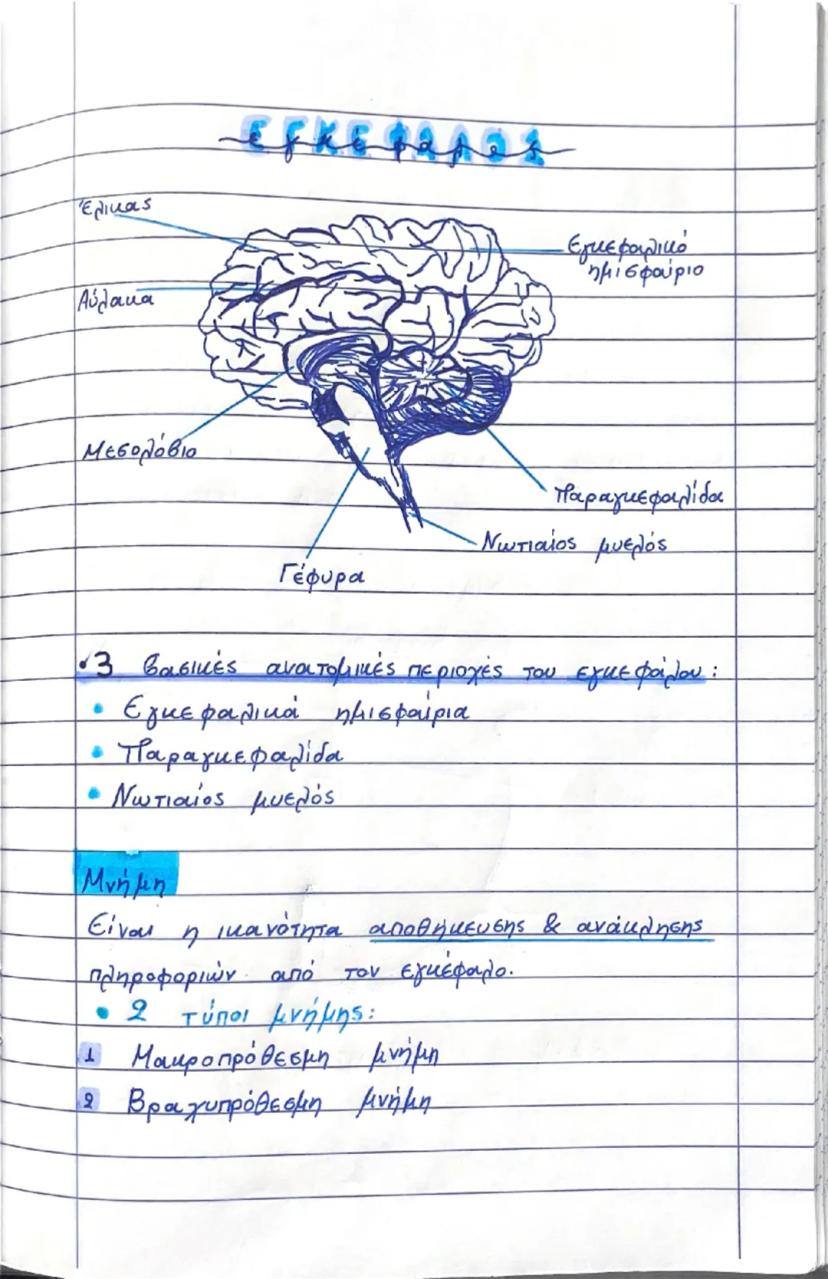 ΕΓΚΕΦΑΛΟΣ
εγκέφαλος
Έλικας
Εγκεφαλικό
ημισφαίριο
Αύλακα
Μεσολόβιο
Παραγκεφαλίδα
Νωτιαίος μυελός
Γέφυρα
•3 βασικές ανατομικές περιοχές του εγκεφάλου:
• Εγκεφαλικά ημισφαίρια
• Παραγκεφαλίδα
• Νωτιαίος μυελός
Μνήμη
Είναι η ικανότητα αποθήκευσης & ανάκλησης
πληροφοριών από τον εγκέφαλο.
• 2 τύποι μνήμης:
1 Μακροπρόθεσμη μνήμη
2 Βραχυπρόθεσμη μνήμη